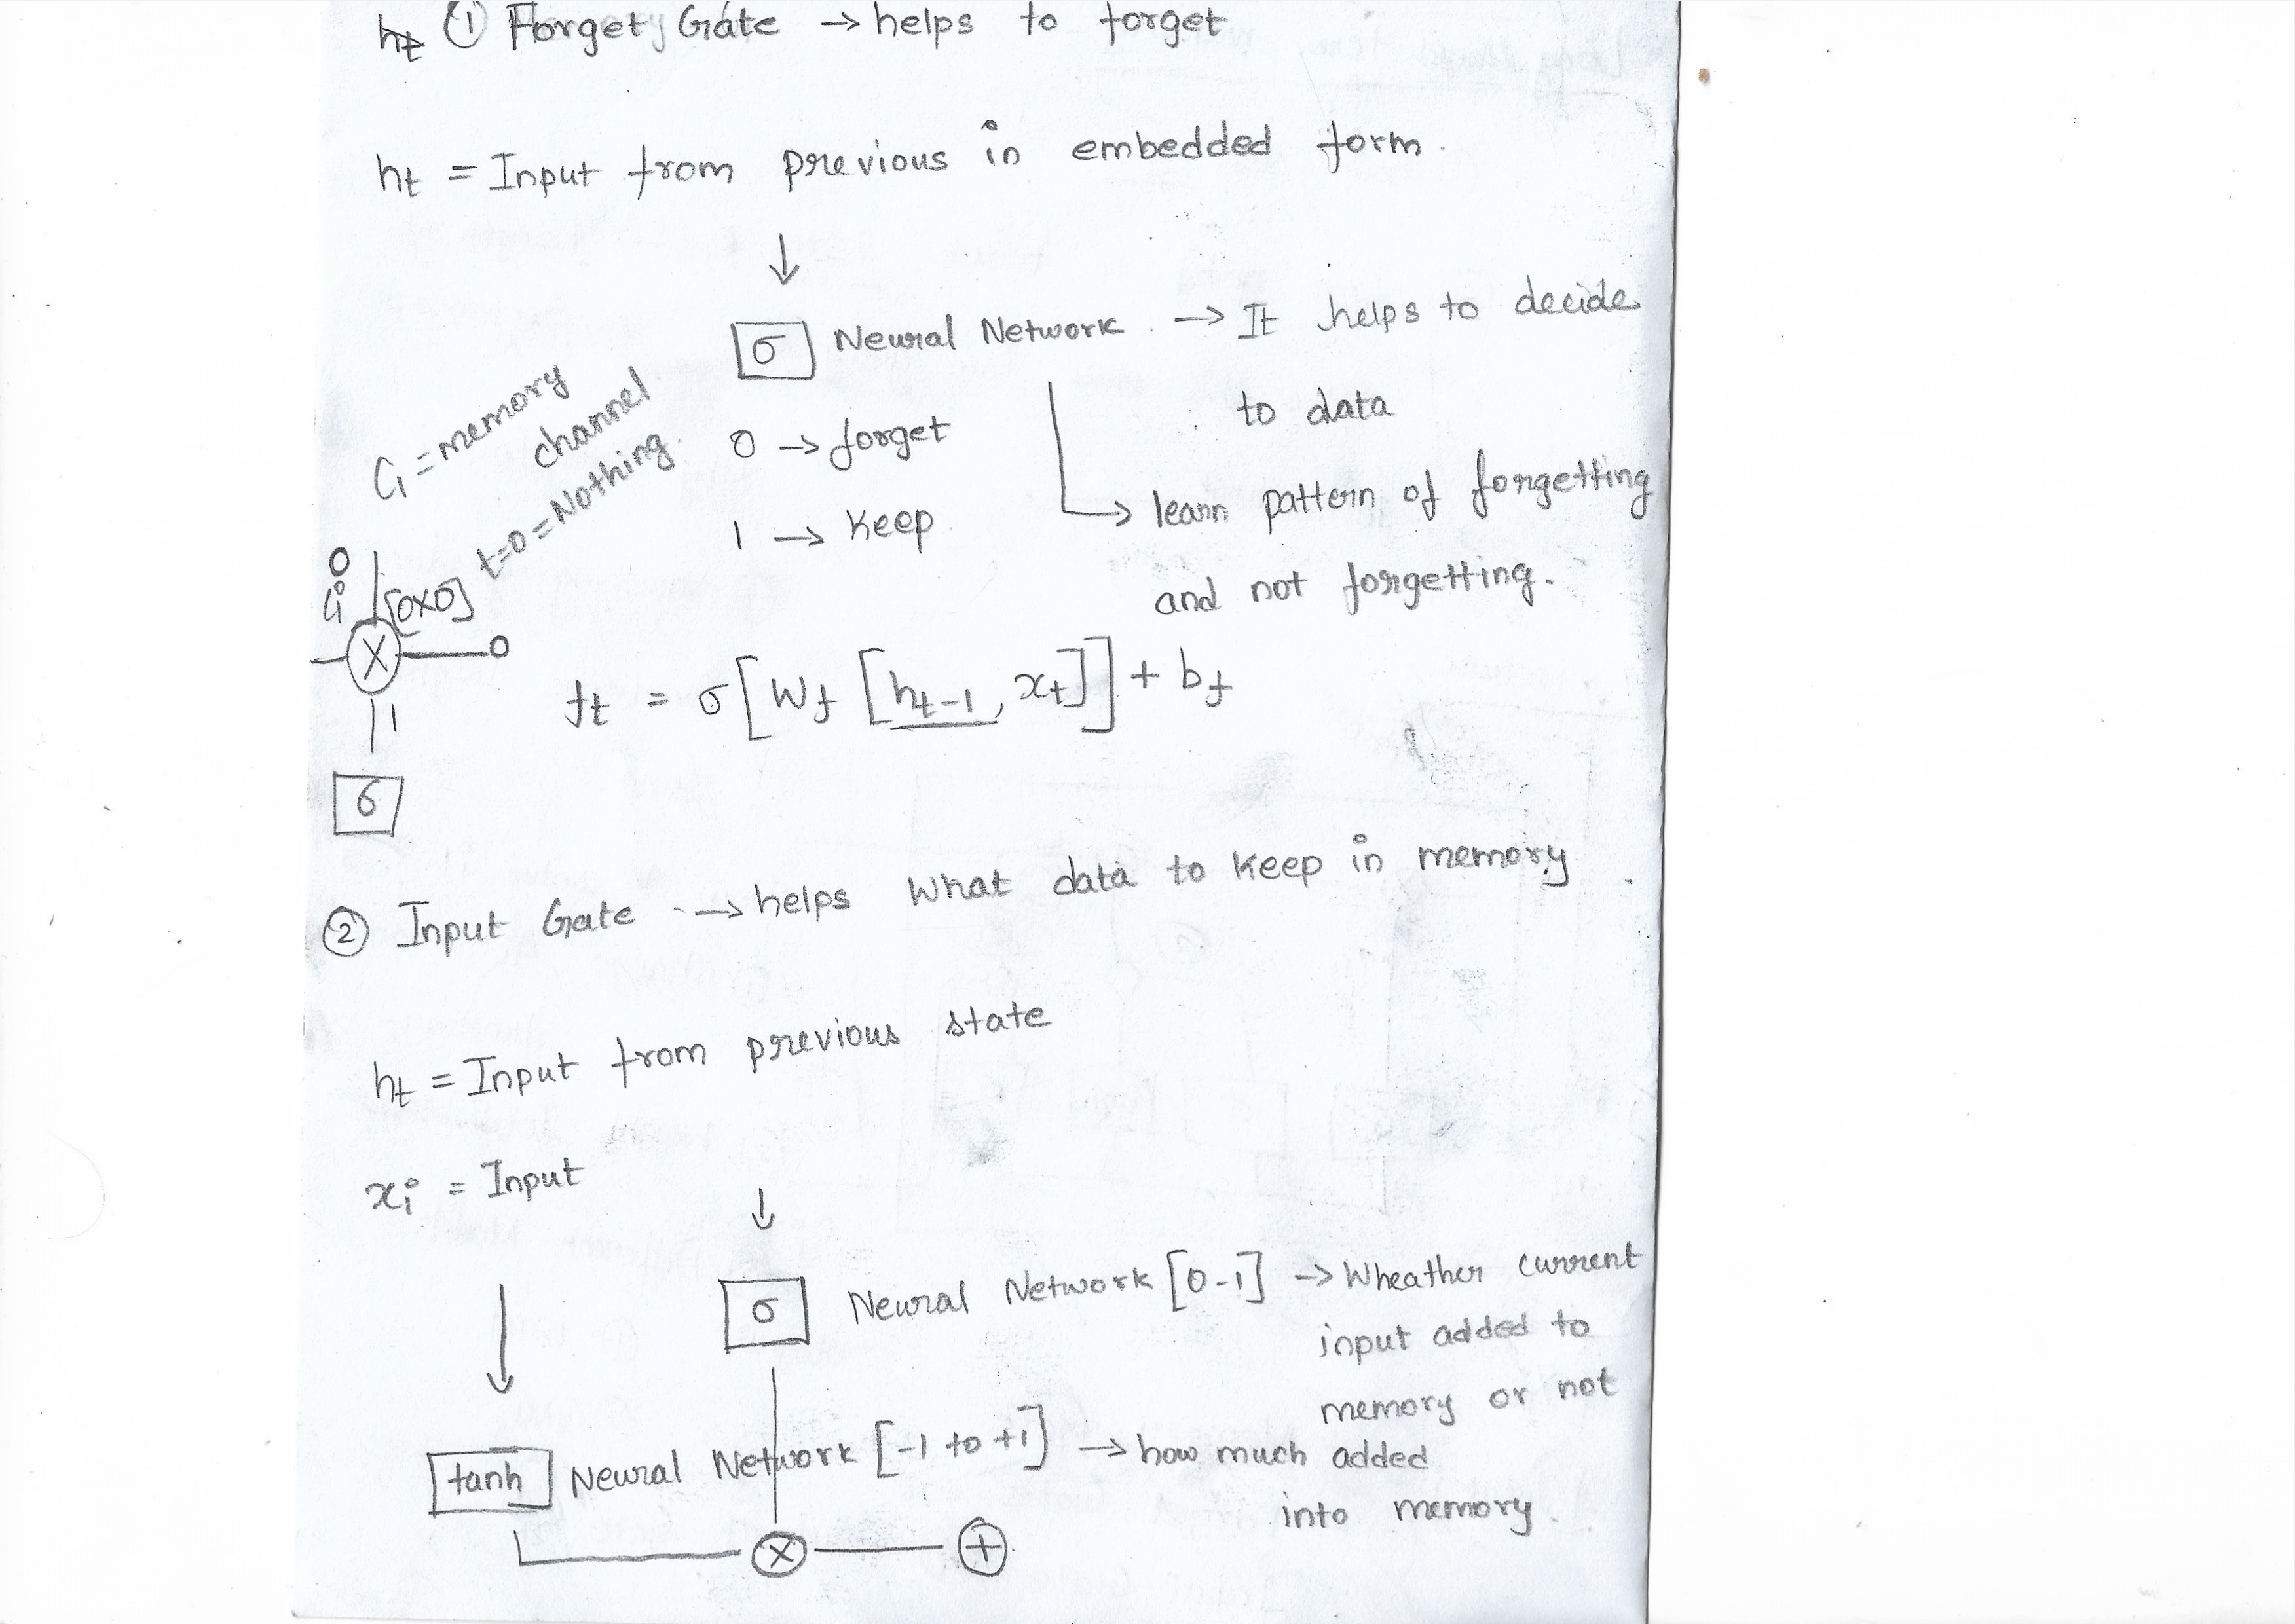 ① Forget Gate → helps to forget
ht = Input from previous in embedded form.
↓
σ Neural Network → It helps to decide
to data
0 → forget
1 → Keep
→ learn pattern of forgetting
and not forgetting.
= memory
channel
t=0 = Nothing.
0
[0x0]
X
0
1
σ
ft = σ[Wf [ht-1, xt]] + bf
② Input Gate → helps What data to Keep in memory
ht = Input from previous state
xi = Input
↓
σ Neural Network [0-1] → Wheather current
input added to
memory or not
↓
tanh Neural Network [-1 to +1] → how much added
into memory.
X +